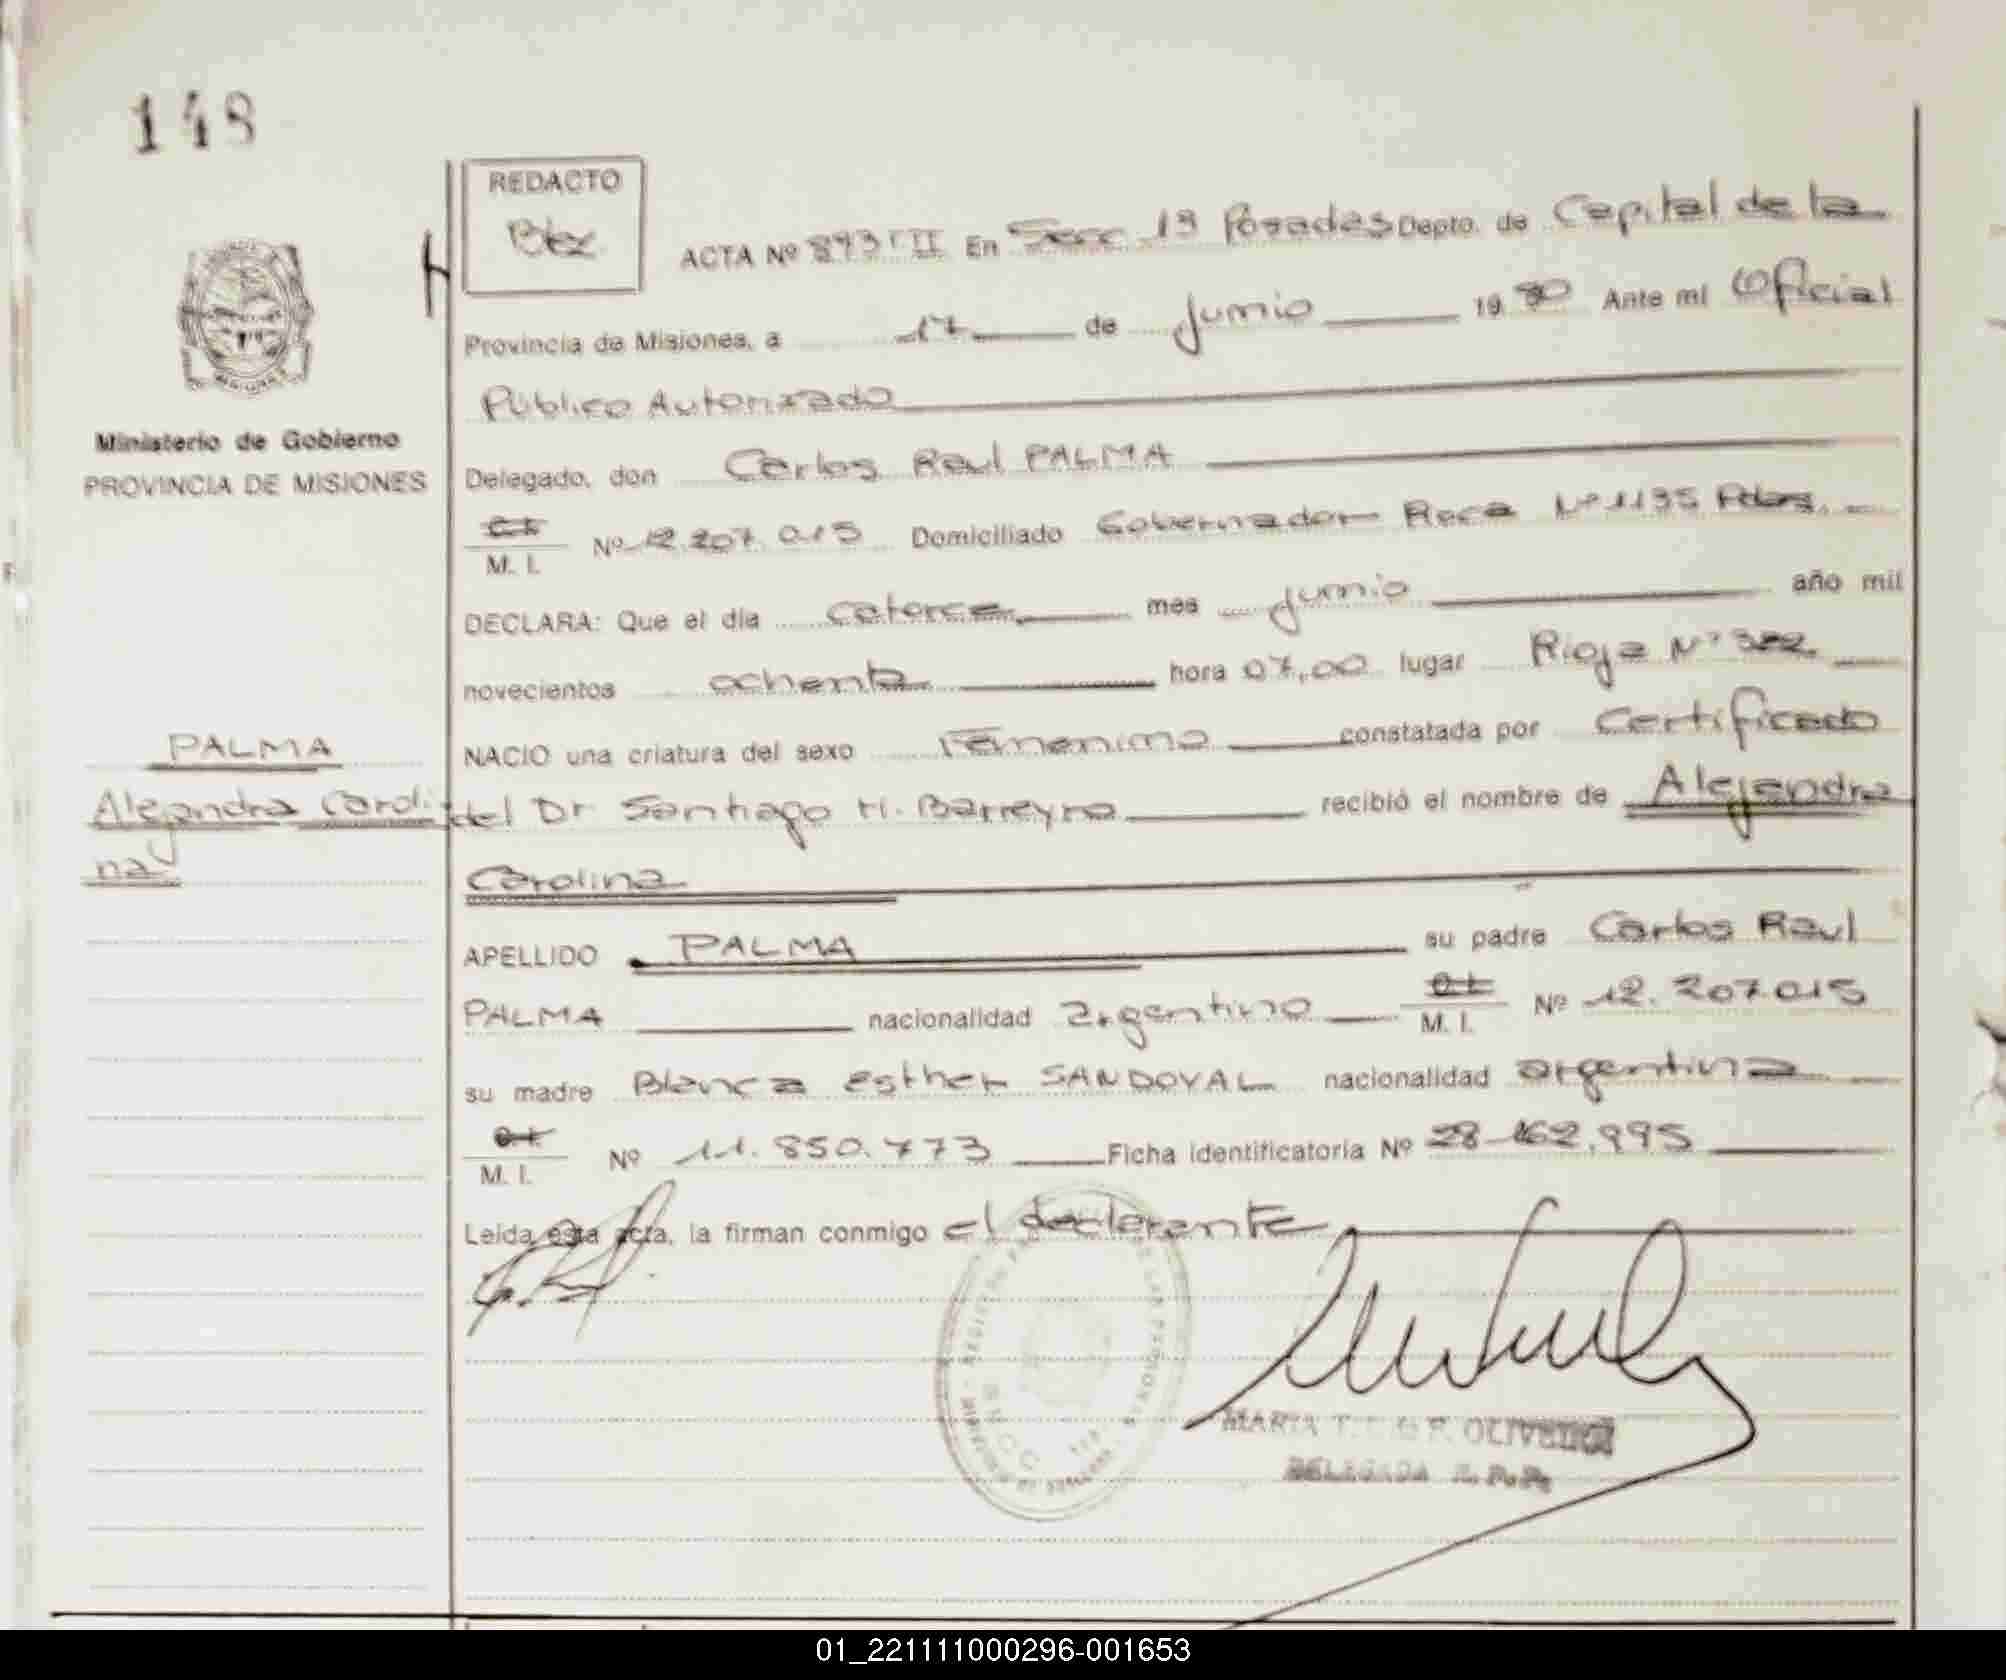 148
REDACTO
ACTA Nº 893 III En Secc 1ª Posadas Depto. de Capital de la
Provincia de Misiones, a 17 de junio 19 80 Ante mi Oficial
Público Autorizado
Ministerio de Gobierno
PROVINCIA DE MISIONES
Delegado, don Carlos Raul PALMA
M. I. Nº 12.207.015 Domiciliado Gobernador Roca Nº 1135 Pdas.
DECLARA: Que el día catorce mes junio año mil
novecientos ochenta hora 07,00 lugar Rioja Nº
PALMA
Alejandra Caroli
na
NACIO una criatura del sexo Femenino constatada por Certificado
del Dr Santiago H. Barreyro recibió el nombre de Alejandra
Carolina
APELLIDO PALMA su padre Carlos Raul
PALMA nacionalidad argentino M. I. Nº 12.207.015
su madre Blanca esther SANDOVAL nacionalidad argentina
M. I. Nº 11.850.773 Ficha identificatoria Nº 28-162.995
Leída esta acta, la firman conmigo el declarante
MARIA T. OLIVEIRA
DELEGADA R. P. P.
01_221111000296-001653